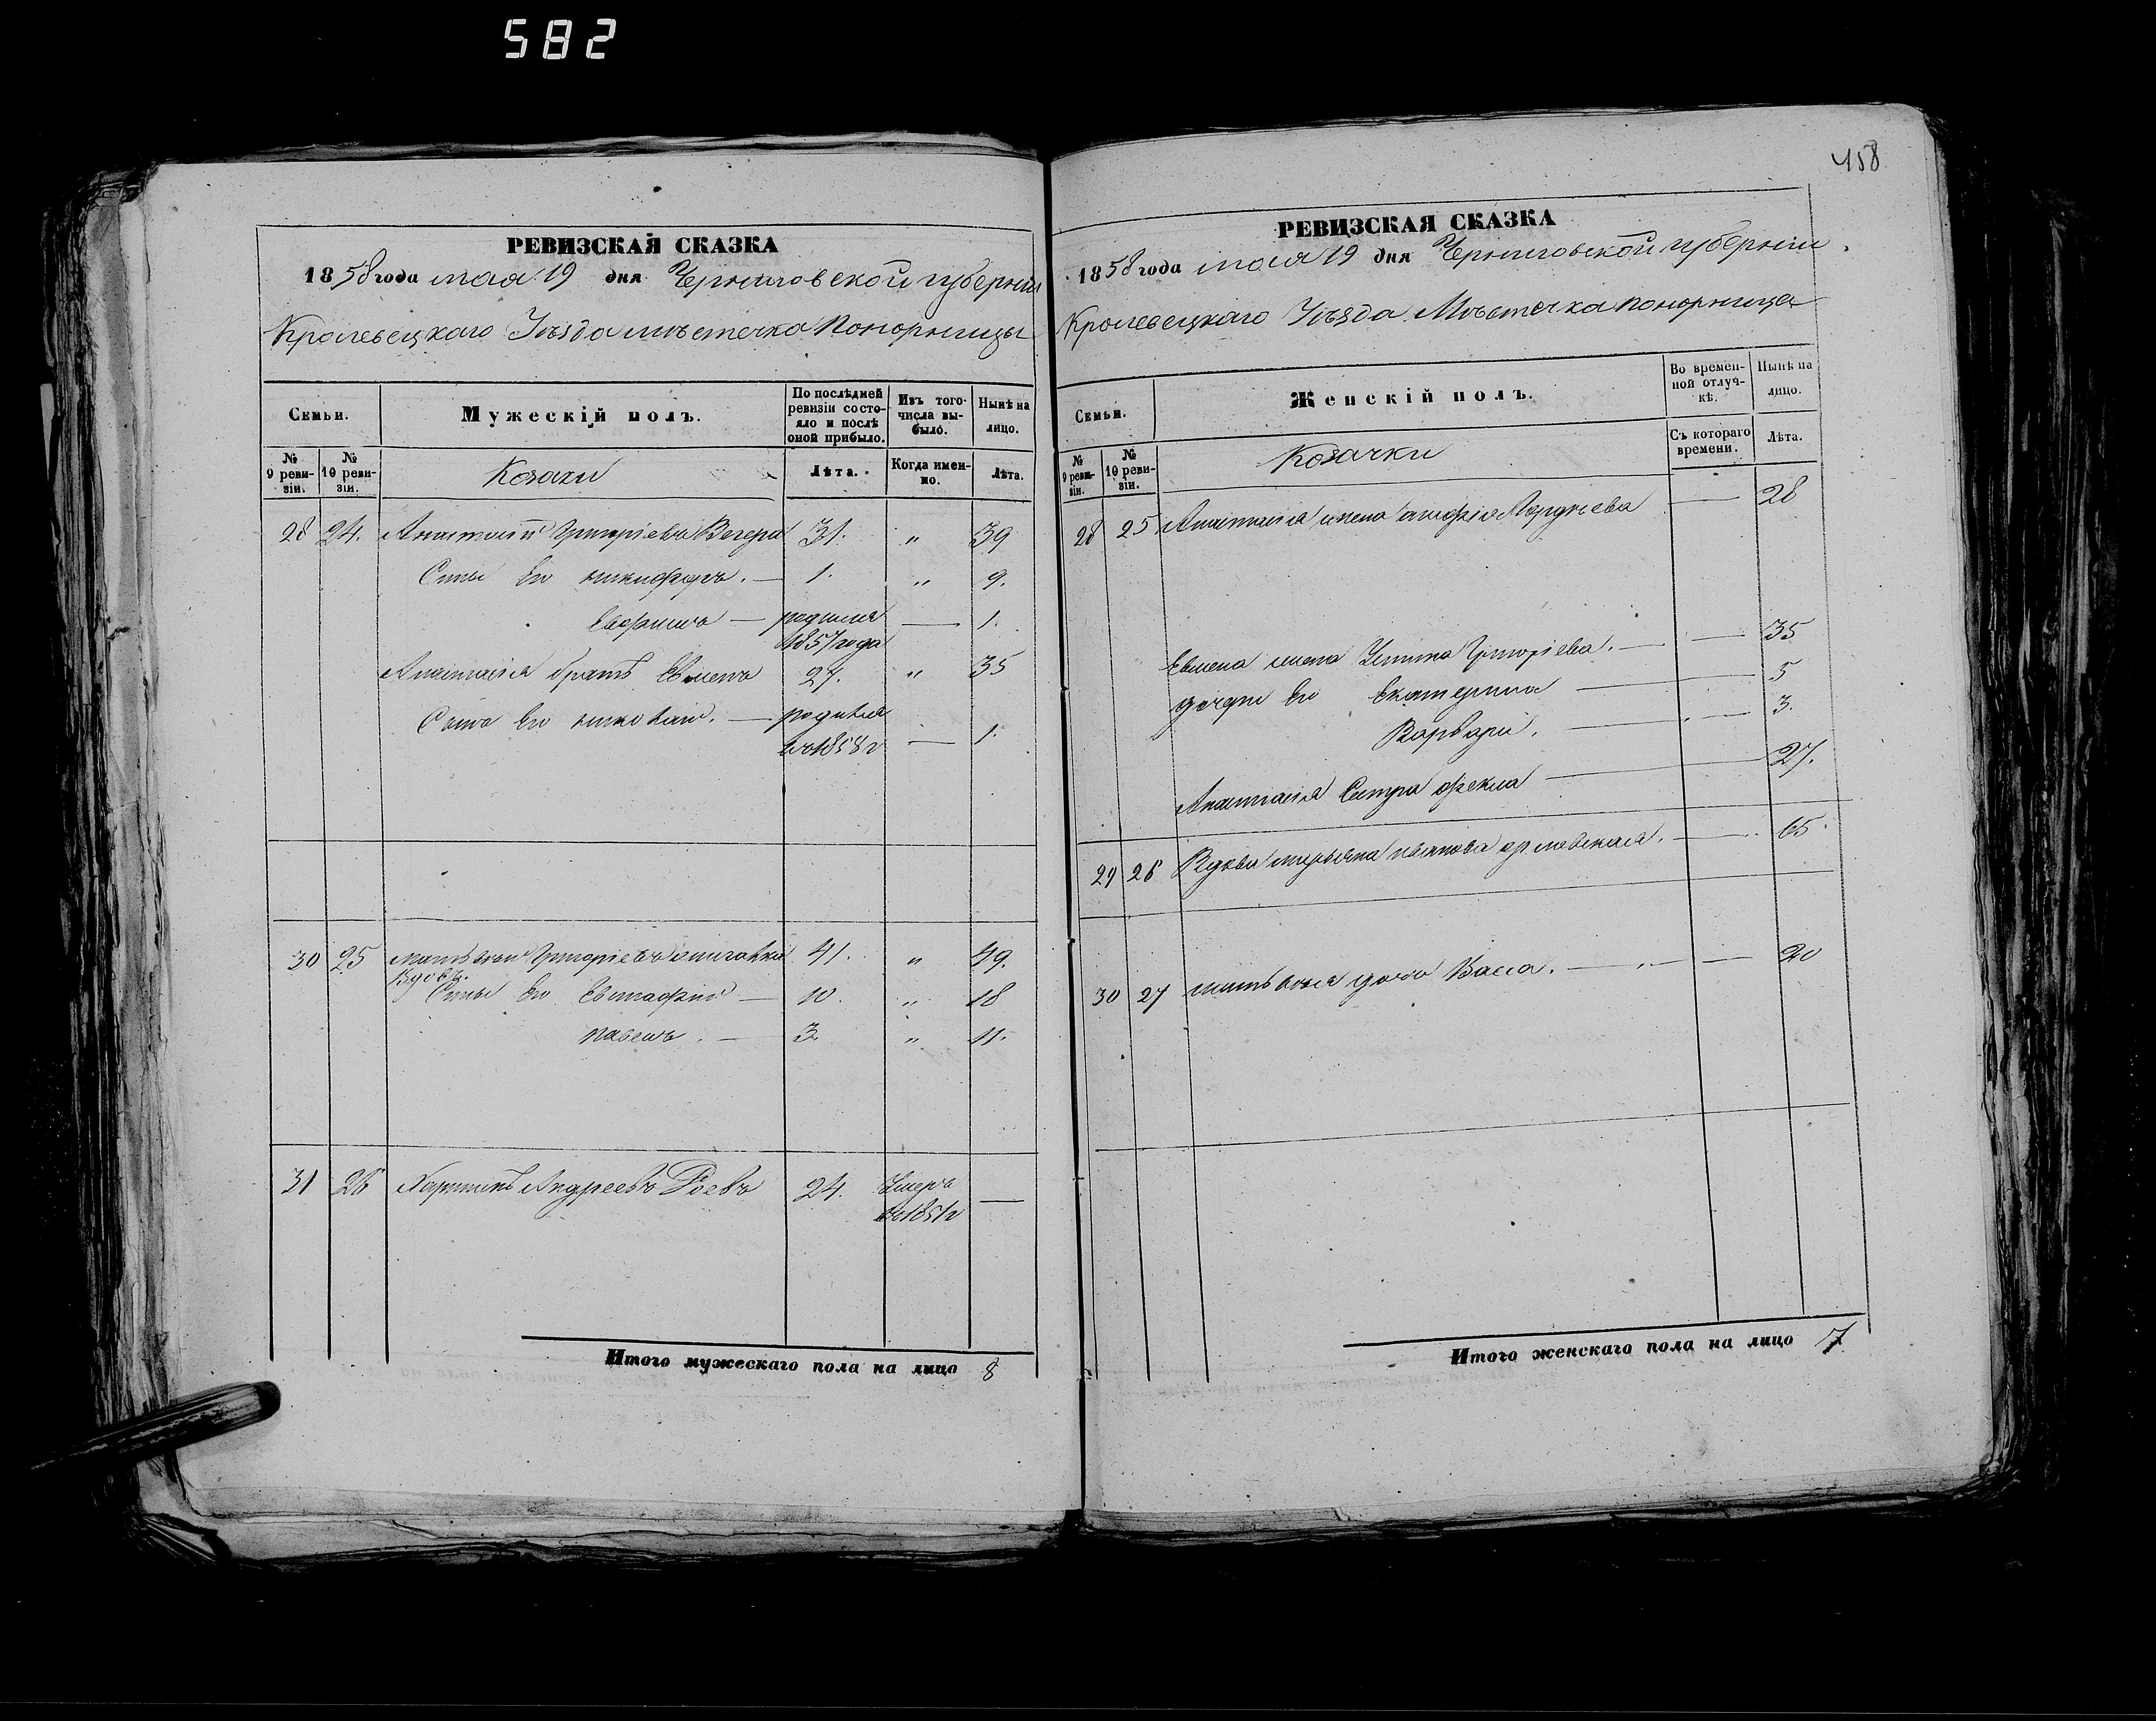 582
РЕВИЗСКАЯ СКАЗКА
1858 года мая 19 дня Черниговской губерніи
Кролевецкаго Уѣзда мѣстечка Понорницы
Семьи.
Мужескій полъ.
По послѣдней ревизіи состояло и послѣ оной прибыло.
Изъ того числа выбыло.
Нынѣ на лицо.
№ 9 ревизіи.
№ 10 ревизіи.
Козаки
Лѣта.
Когда именно.
Лѣта.
28 24. Анастасій Григоріевъ Вегера 31. " 39
Сыны Его никифоръ. — 1. " 9.
— родился — 1.
1857 года
Анастасія братъ Евменъ 27. " 35
Сынъ Его николай. — родился
въ 1858 г — 1.
30 25 Григоріевъ 41. " 49.
Вдовъ.
Сыны Его Евстафій — 10. " 18
павелъ. — 3 " 11.
31 26 Андреевъ 24. Умеръ —
въ 1851 г
Итого мужескаго пола на лицо 8
458
РЕВИЗСКАЯ СКАЗКА
1858 года мая 19 дня Черниговской губерніи
Кролевецкаго Уѣзда Мѣстечка понорница
Семьи.
Женскій полъ.
Во временной отлучкѣ.
Нынѣ на лицо.
№ 9 ревизіи.
№ 10 ревизіи.
Козачки
Съ котораго времени.
Лѣта.
28 25 Анастасія жена — 28
Евмена жена Устина Григоріева. — — 35
дочери Его Екатерина — 5
Варвара. — — 3.
Анастасія Сестра Фекла — 27.
29 26 Вдова иванова — 65
30 27 дочь Васса. — — 20
Итого женскаго пола на лицо 7